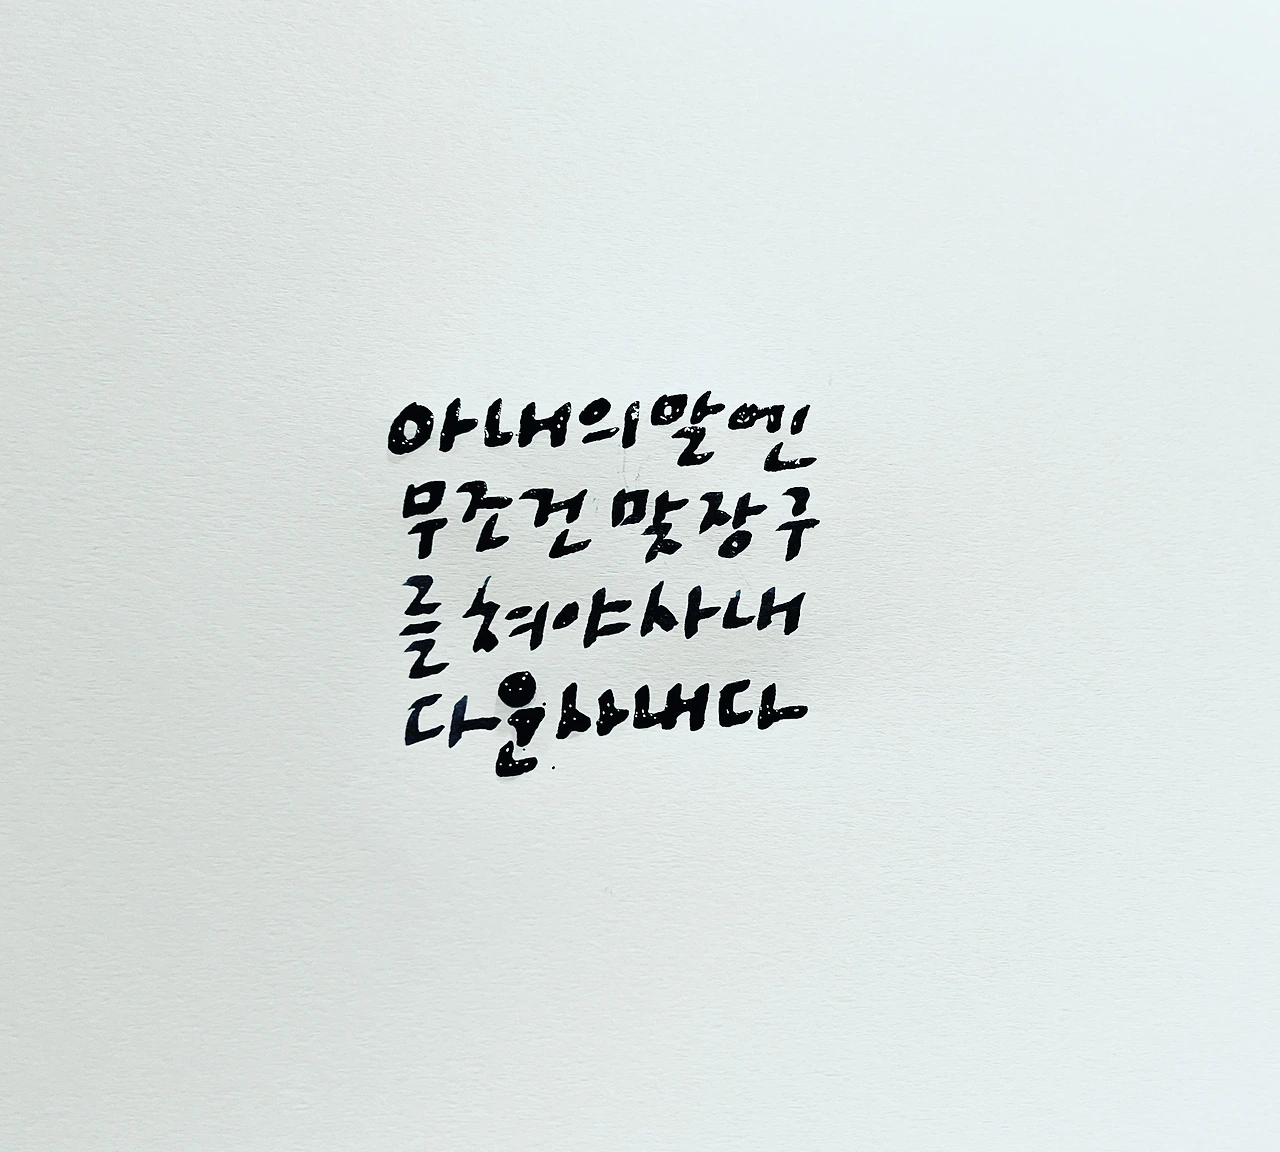 아내의말엔
무조건 맞장구
를 쳐야사내
다운사내다